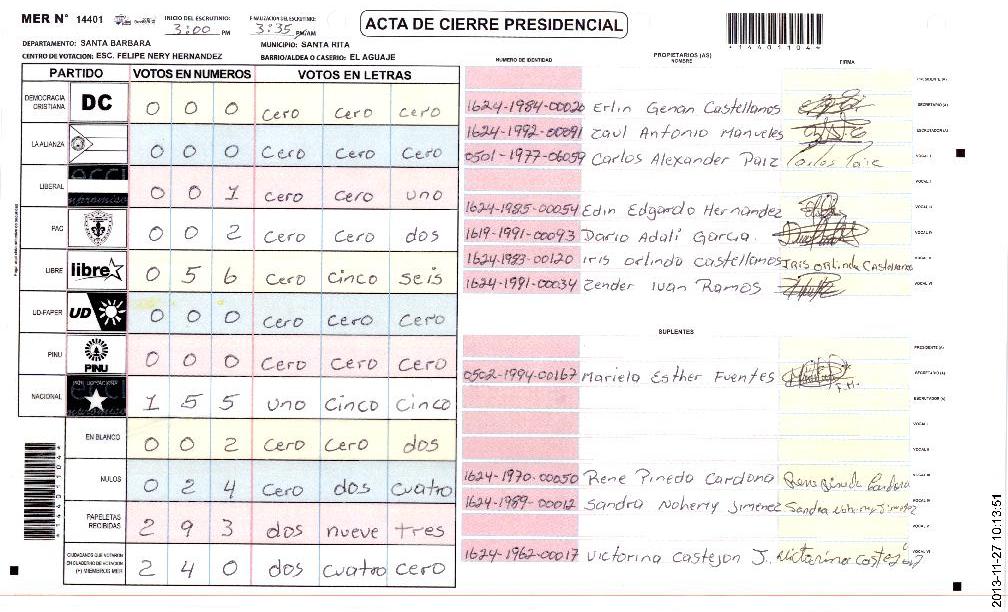 MER N° 14401 INICIO DEL ESCRUTINIO: 3:00 PM FINALIZACION DEL ESCRUTINIO: 3:35 PM/AM
ACTA DE CIERRE PRESIDENCIAL
DEPARTAMENTO: SANTA BARBARA MUNICIPIO: SANTA RITA
CENTRO DE VOTACION: ESC. FELIPE NERY HERNANDEZ BARRIO/ALDEA O CASERIO: EL AGUAJE
PARTIDO VOTOS EN NUMEROS VOTOS EN LETRAS
DEMOCRACIA CRISTIANA DC 0 0 0 cero cero cero
LA ALIANZA 0 0 0 cero cero cero
LIBERAL 0 0 1 cero cero uno
PAC 0 0 2 cero cero dos
LIBRE libre 0 5 6 cero cinco seis
UD-FAPER UD 0 0 0 cero cero cero
PINU PINU 0 0 0 cero cero cero
NACIONAL 1 5 5 uno cinco cinco
EN BLANCO 0 0 2 cero cero dos
NULOS 0 2 4 cero dos cuatro
PAPELETAS RECIBIDAS 2 9 3 dos nueve tres
CIUDADANOS QUE VOTARON EN CUADERNO DE VOTACION (+) MIEMBROS MER 2 4 0 dos cuatro cero
NUMERO DE IDENTIDAD PROPIETARIOS (AS) NOMBRE FIRMA
PRESIDENTE (A)
1624-1984-00020 Erlin Genan Castellanos SECRETARIO (A)
1624-1992-00091 Zaul Antonio Manueles ESCRUTADOR (A)
0501-1977-06059 Carlos Alexander Paiz Carlos Paiz VOCAL I
VOCAL II
1624-1985-00054 Edin Edgardo Hernandez VOCAL III
1619-1991-00093 Dario Adali Garcia. VOCAL IV
1624-1983-00120 iris orlindo castellanos IRIS ORLINDA Castellanos VOCAL V
1624-1991-00034 Zender Ivan Ramos VOCAL VI
SUPLENTES
PRESIDENTE (A)
0502-1994-00167 Mariela Esther Fuentes SECRETARIO (A)
ESCRUTADOR (A)
VOCAL I
VOCAL II
1624-1970-00050 Rene Pinedo Cardona Rene Pineda Cardona VOCAL III
1624-1989-00012 Sandra Noherny Jimenez VOCAL IV
VOCAL V
1624-1962-00017 Victorina Castejon J. VOCAL VI
2013-11-27 10:13:51